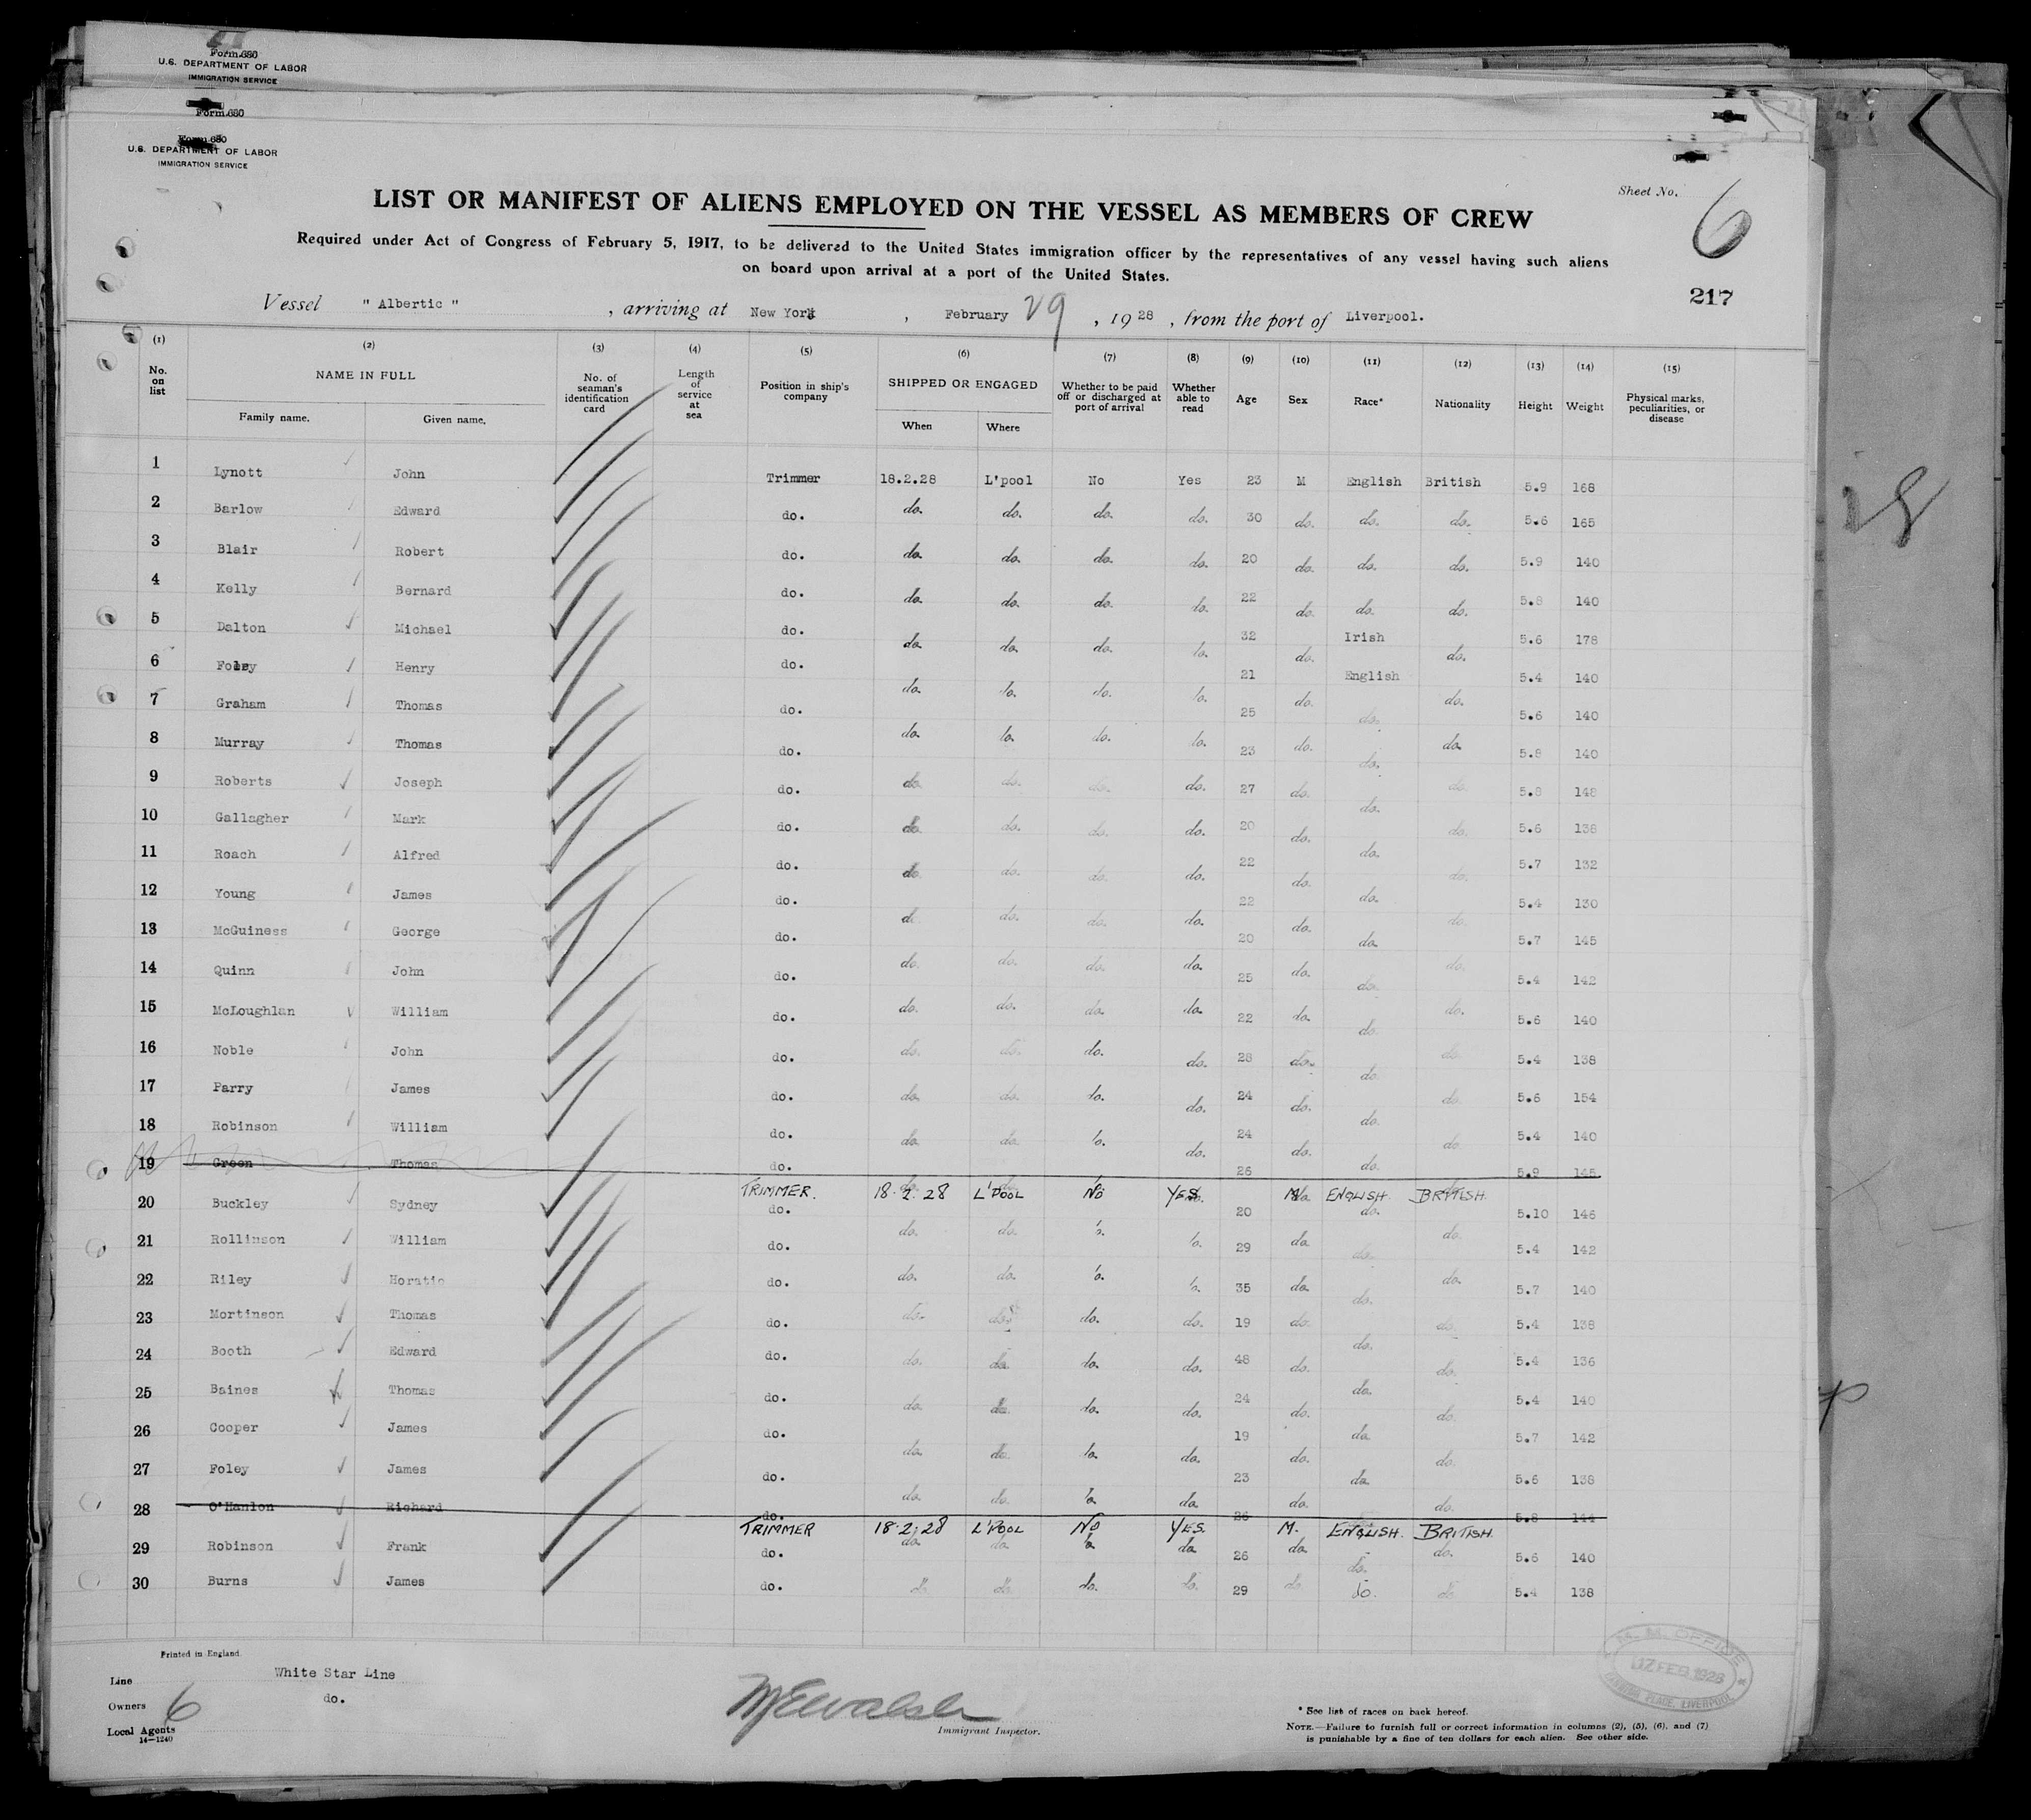 Form 680
U.S. DEPARTMENT OF LABOR
IMMIGRATION SERVICE
Form 680
Form 680
U.S. DEPARTMENT OF LABOR
IMMIGRATION SERVICE
Sheet No. 6
LIST OR MANIFEST OF ALIENS EMPLOYED ON THE VESSEL AS MEMBERS OF CREW
Required under Act of Congress of February 5, 1917, to be delivered to the United States immigration officer by the representatives of any vessel having such aliens
on board upon arrival at a port of the United States.
217
Vessel " Albertic " , arriving at New York , February 29 , 1928 , from the port of Liverpool.
(1) (2) (3) (4) (5) (6) (7) (8) (9) (10) (11) (12) (13) (14) (15)
No. on list NAME IN FULL No. of seaman's identification card Length of service at sea Position in ship's company SHIPPED OR ENGAGED Whether to be paid off or discharged at port of arrival Whether able to read Age Sex Race* Nationality Height Weight Physical marks, peculiarities, or disease
Family name. Given name. When Where
1 Lynott John Trimmer 18.2.28 L'pool No Yes 23 M English British 5.9 168
2 Barlow Edward do. do. do. do. do. 30 do. do. do. 5.6 165
3 Blair Robert do. do. do. do. do. 20 do. do. do. 5.9 140
4 Kelly Bernard do. do. do. do. do. 22 do. do. do. 5.8 140
5 Dalton Michael do. do. do. do. do. 32 do. Irish do. 5.6 178
6 Foley Henry do. do. do. do. do. 21 do. English do. 5.4 140
7 Graham Thomas do. do. do. do. do. 25 do. do. do. 5.6 140
8 Murray Thomas do. do. do. do. do. 23 do. do. do. 5.8 140
9 Roberts Joseph do. do. do. do. do. 27 do. do. do. 5.8 148
10 Gallagher Mark do. do. do. do. do. 20 do. do. do. 5.6 138
11 Roach Alfred do. do. do. do. do. 22 do. do. do. 5.7 132
12 Young James do. do. do. do. do. 22 do. do. do. 5.4 130
13 McGuiness George do. do. do. do. do. 20 do. do. do. 5.7 145
14 Quinn John do. do. do. do. do. 25 do. do. do. 5.4 142
15 McLoughlan William do. do. do. do. do. 22 do. do. do. 5.6 140
16 Noble John do. do. do. do. do. 28 do. do. do. 5.4 138
17 Parry James do. do. do. do. do. 24 do. do. do. 5.6 154
18 Robinson William do. do. do. do. do. 24 do. do. do. 5.4 140
19 Green Thomas do. do. do. 26 5.9 145
TRIMMER. 18.2.28 L'POOL NO YES M ENGLISH. BRITISH.
20 Buckley Sydney do. 20 do. 5.10 146
21 Rollinson William do. do. do. do. do. 29 do. do. do. 5.4 142
22 Riley Horatio do. do. do. do. do. 35 do. do. do. 5.7 140
23 Mortinson Thomas do. do. do. do. do. 19 do. do. do. 5.4 138
24 Booth Edward do. do. do. do. do. 48 do. do. do. 5.4 136
25 Baines Thomas do. do. do. do. do. 24 do. do. do. 5.4 140
26 Cooper James do. do. do. do. do. 19 do. do. do. 5.7 142
27 Foley James do. do. do. do. do. 23 do. do. do. 5.6 138
28 O'Hanlon Richard do. do. do. do. do. 26 do. do. 5.8 144
TRIMMER 18.2.28 L'POOL NO YES. M. ENGLISH. BRITISH.
29 Robinson Frank do. do. do. do. do. 26 do. do. do. 5.6 140
30 Burns James do. do. do. do. do. 29 do. do. do. 5.4 138
Printed in England.
Line White Star Line
Owners do.
6
Local Agents
14—1240
Immigrant Inspector.
M. M. OFFICE
17 FEB 1928
PLACE, LIVERPOOL
* See list of races on back hereof.
NOTE.—Failure to furnish full or correct information in columns (2), (5), (6), and (7)
is punishable by a fine of ten dollars for each alien. See other side.